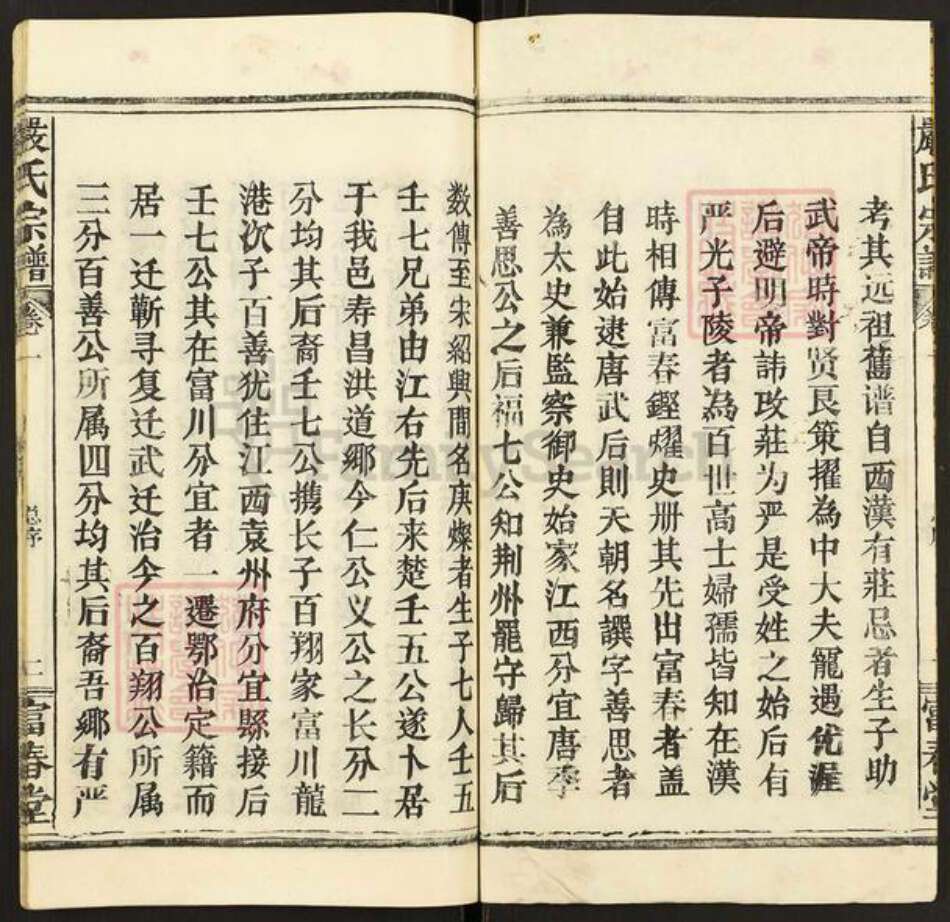 考其远祖舊谱自西漢有莊忌者生子助
武帝時對贤良策擢為中大夫寵遇优渥
后避明帝諱改莊为严是受姓之始后有
严光子陵者為百世高士婦孺皆知在漢
時相傳富春鏗燿史册其先出富春者盖
自此始逮唐武后則天朝名譔字善思者
為太史兼監察御史始家江西分宜唐季
善思公之后福七公知荆州罷守歸其后
数傳至宋紹興間名庚燦者生子七人壬五
壬七兄弟由江右先后来楚壬五公遂卜居
于我邑寿昌洪道鄉今仁公义公之长分二
分均其后裔壬七公携长子百翔家富川龍
港次子百善犹住江西袁州府分宜縣接后
壬七公其在富川分宜者一遷鄂冶定籍而
居一迁蘄寻复迁武迁冶今之百翔公所属
三分百善公所属四分均其后裔吾鄉有严
嚴氏宗譜
卷一
总序
二
富春堂
FamilySearch